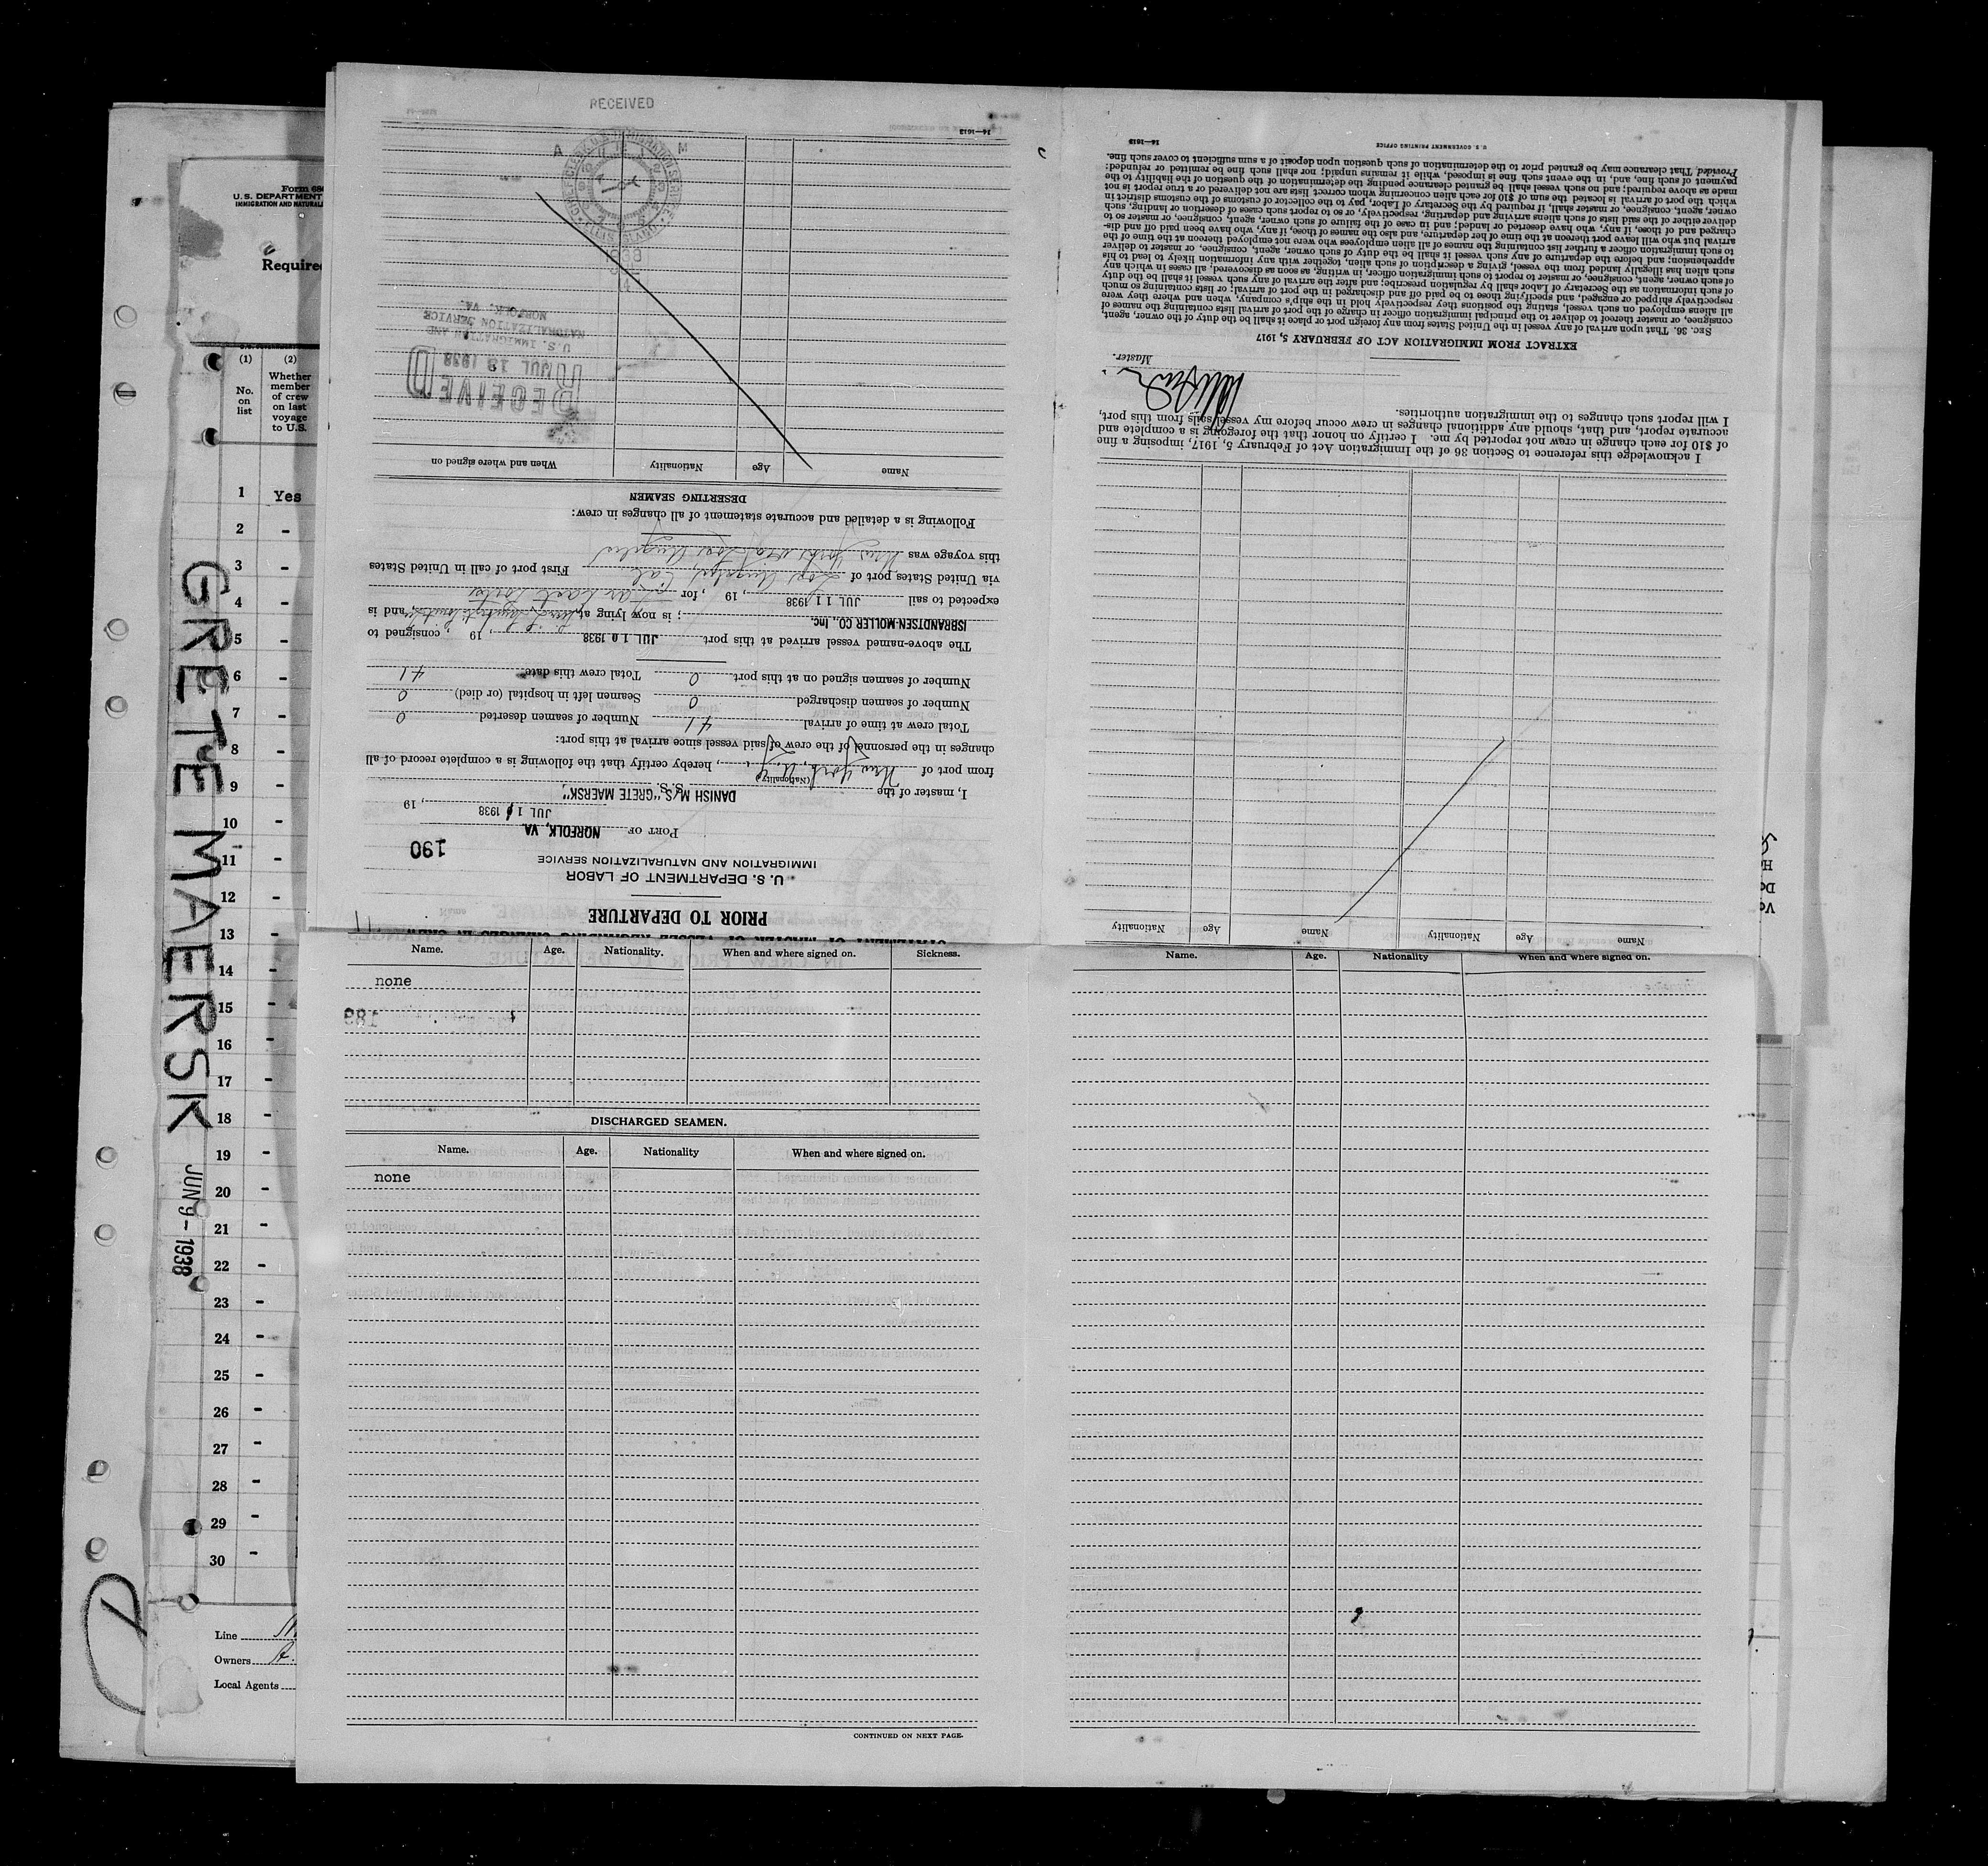 Form 68
U. S. DEPARTMENT
IMMIGRATION AND NATURAL
Require
(1)
No.
on
list
(2)
Whether
member
of crew
on last
voyage
to U.S.
1 Yes
2 -
3 -
4 -
5 -
6 -
7 -
8 -
9 -
10 -
11 -
12 -
13 -
14 -
15 -
16 -
17 -
18 -
19 -
20 -
21 -
22 -
23 -
24 -
25 -
26 -
27 -
28 -
29 -
30 -
Line
Owners A.
Local Agents
GRETE MAERSK
JUN 9 - 1938
PRIOR TO DEPARTURE
U. S. DEPARTMENT OF LABOR
IMMIGRATION AND NATURALIZATION SERVICE
190
PORT OF NORFOLK, VA.
JUL 1 1938, 19
I, master of the DANISH M/S "GRETE MAERSK" S.S.
(Nationality)
from port of New York, N.Y., hereby certify that the following is a complete record of all
changes in the personnel of the crew of said vessel since arrival at this port:
Total crew at time of arrival 41 Number of seamen deserted 0
Number of seamen discharged 0 Seamen left in hospital (or died) 0
Number of seamen signed on at this port 0 Total crew this date 41
The above-named vessel arrived at this port JUL 10 1938, 19 , consigned to
ISBRANDTSEN-MOLLER CO., Inc. ; is now lying at , and is
expected to sail JUL 11 1938, 19 , for
via United States port of Los Angeles, Cal First port of call in United States
this voyage was New York via Los Angeles
Following is a detailed and accurate statement of all changes in crew:
DESERTING SEAMEN
Name Age Nationality When and where signed on
RECEIVED
JUL 13 1938
U. S. IMMIGRATION AND
NATURALIZATION SERVICE
NORFOLK, VA.
16—1613
RECEIVED
Name Age Nationality Name Age Nationality
I acknowledge this reference to Section 36 of the Immigration Act of February 5, 1917, imposing a fine
of $10 for each change in crew not reported by me. I certify on honor that the foregoing is a complete and
accurate report, and that, should any additional changes in crew occur before my vessel sails from this port,
I will report such changes to the immigration authorities.
Master.
EXTRACT FROM IMMIGRATION ACT OF FEBRUARY 5, 1917
SEC. 36. That upon arrival of any vessel in the United States from any foreign port or place it shall be the duty of the owner, agent,
consignee, or master thereof to deliver to the principal immigration officer in charge of the port of arrival lists containing the names of
all aliens employed on such vessel, stating the positions they respectively hold in the ship's company, when and where they were
respectively shipped or engaged, and specifying those to be paid off and discharged in the port of arrival; or lists containing so much
of such information as the Secretary of Labor shall by regulation prescribe; and after the arrival of any such vessel it shall be the duty
of such owner, agent, consignee, or master to report to such immigration officer, in writing, as soon as discovered, all cases in which any
such alien has illegally landed from the vessel, giving a description of such alien, together with any information likely to lead to his
apprehension; and before the departure of any such vessel it shall be the duty of such owner, agent, consignee, or master to deliver
to such immigration officer a further list containing the names of all alien employees who were not employed thereon at the time of the
arrival but who will leave port thereon at the time of her departure, and also the names of those, if any, who have been paid off and dis-
charged and of those, if any, who have deserted or landed; and in case of the failure of such owner, agent, consignee, or master so to
deliver either of the said lists of such aliens arriving and departing, respectively, or so to report such cases of desertion or landing, such
owner, agent, consignee, or master shall, if required by the Secretary of Labor, pay to the collector of customs of the customs district in
which the port of arrival is located the sum of $10 for each alien concerning whom correct lists are not delivered or a true report is not
made as above required; and no such vessel shall be granted clearance pending the determination of the question of the liability to the
payment of such fine, and, in the event such fine is imposed, while it remains unpaid; nor shall such fine be remitted or refunded:
Provided, That clearance may be granted prior to the determination of such question upon deposit of a sum sufficient to cover such fine.
U. S. GOVERNMENT PRINTING OFFICE 16—1613
Name. Age. Nationality. When and where signed on. Sickness.
none
189
DISCHARGED SEAMEN.
Name. Age. Nationality When and where signed on.
none
CONTINUED ON NEXT PAGE.
Name. Age. Nationality When and where signed on.